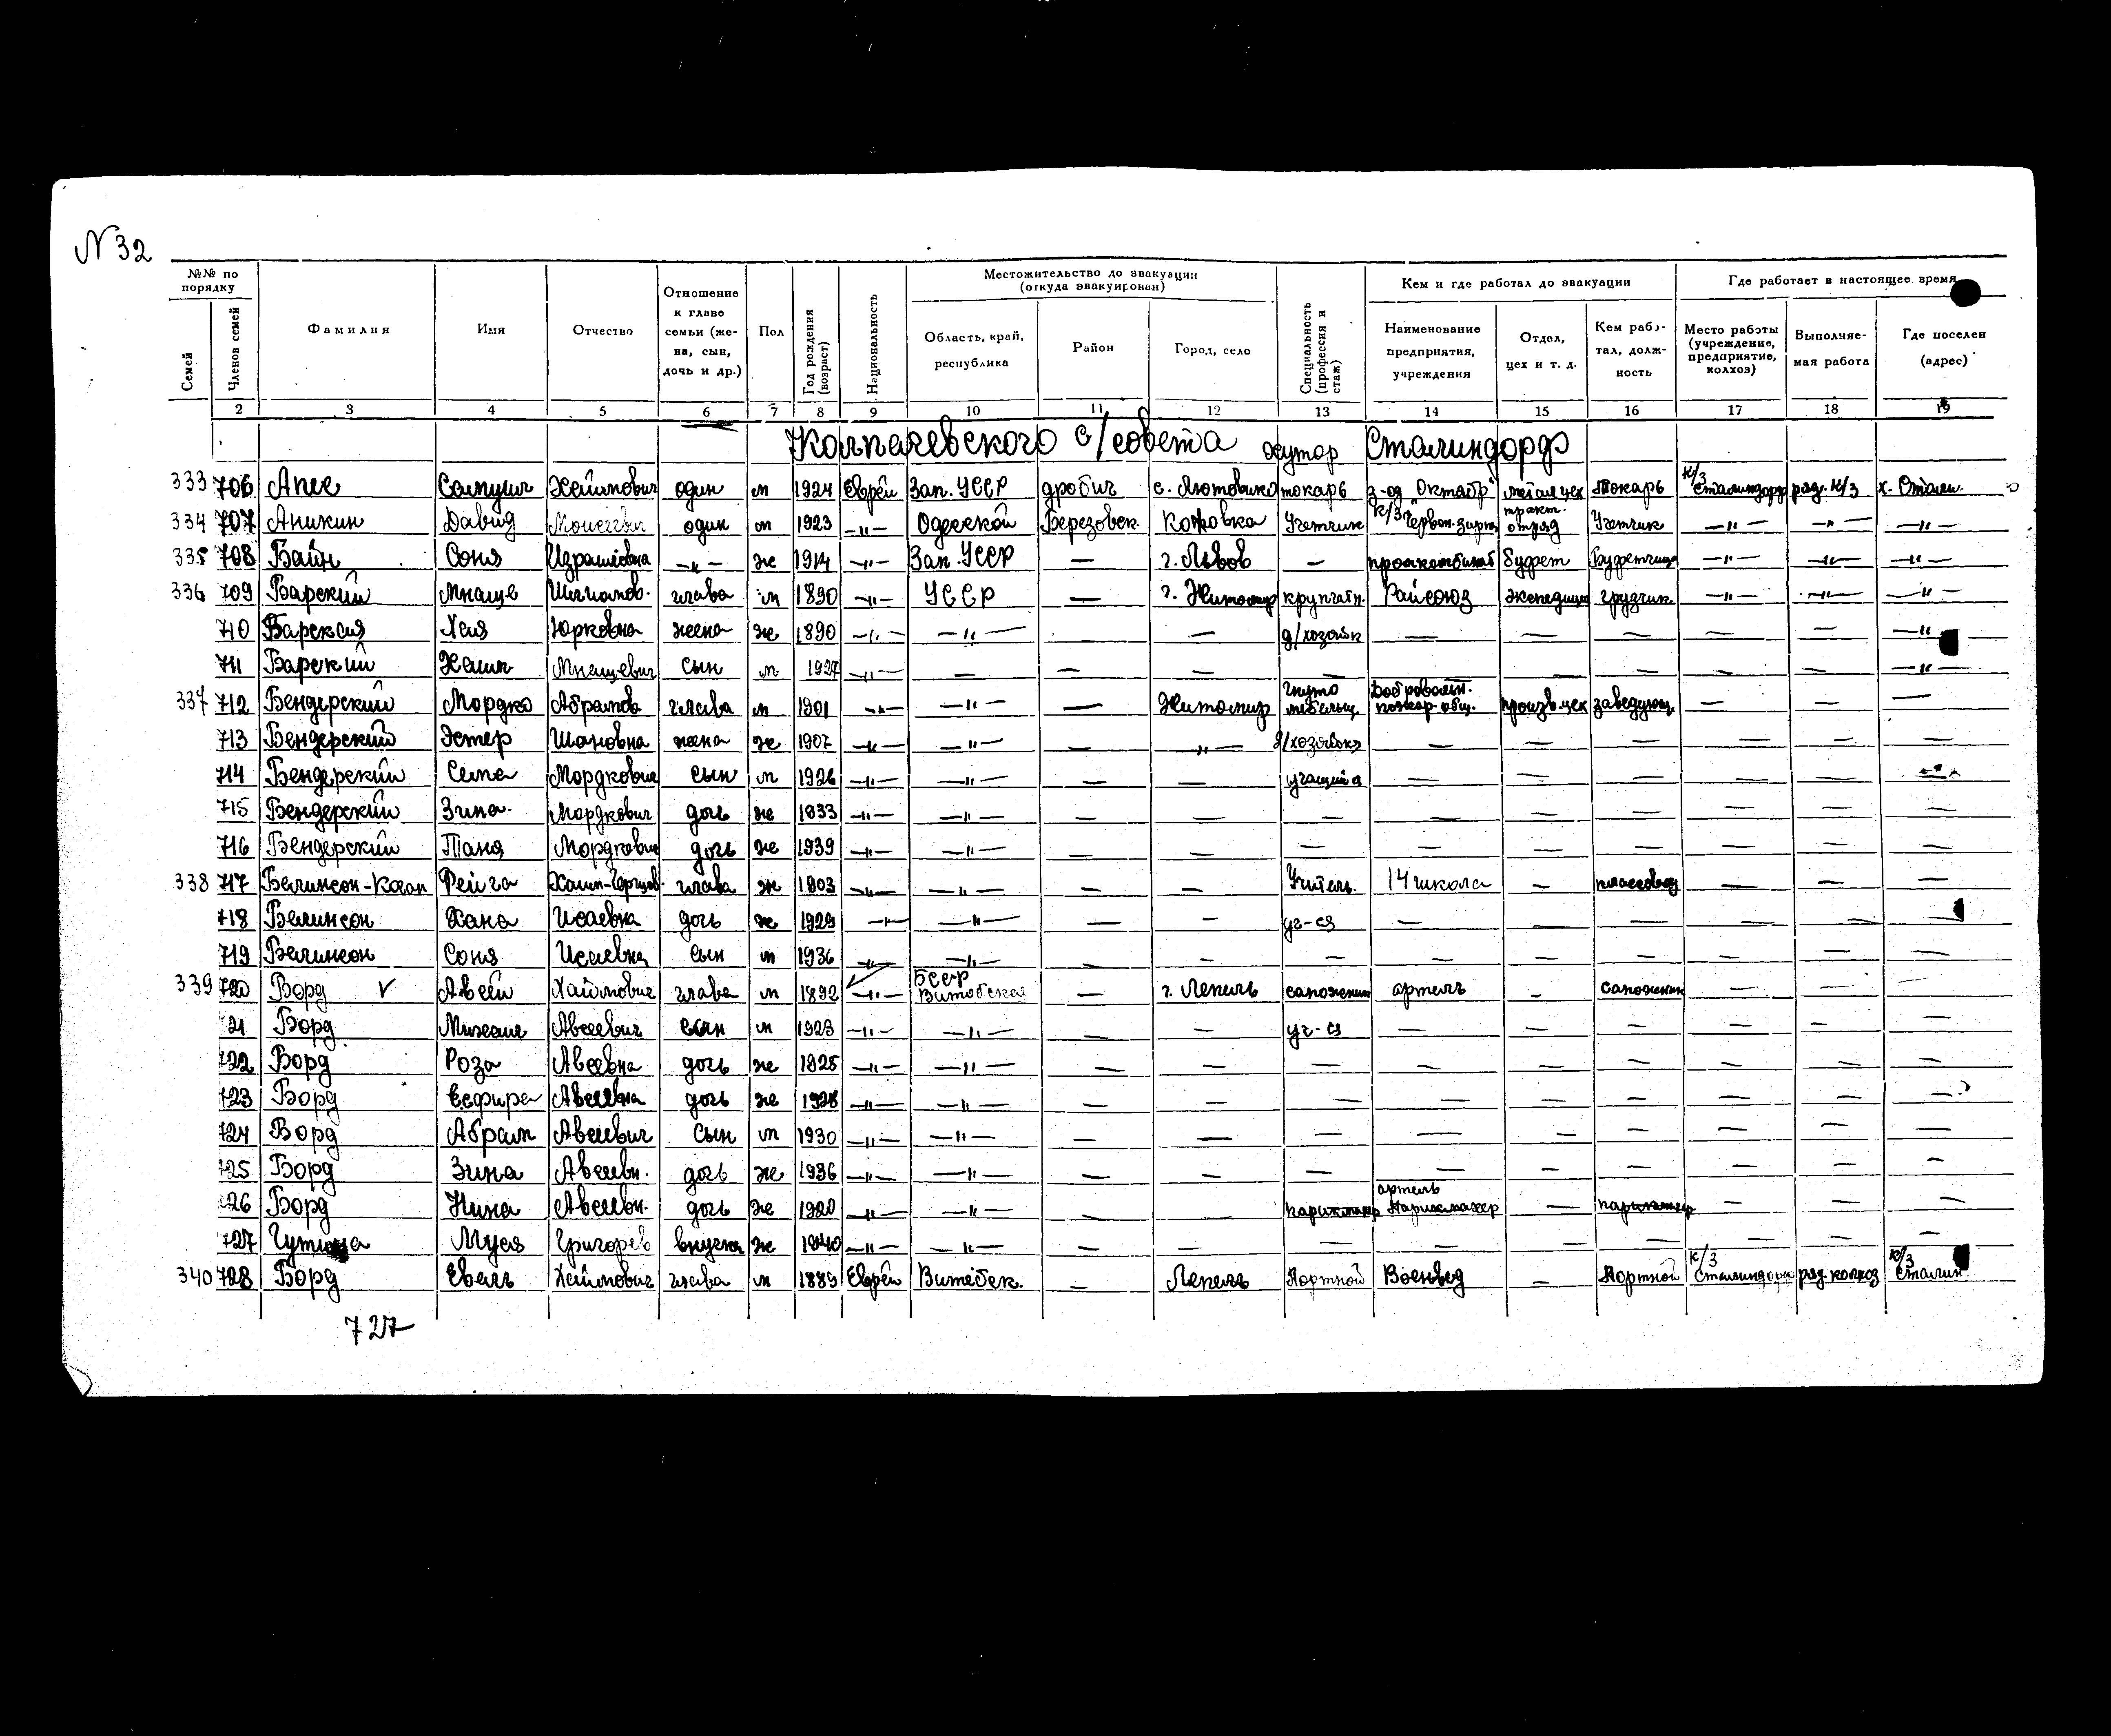 N 32
№№ по порядку
Семей
Членов семей
Фамилия
Имя
Отчество
Отношение к главе семьи (жена, сын, дочь и др.)
Пол
Год рождения (возраст)
Национальность
Местожительство до эвакуации (откуда эвакуирован)
Область, край, республика
Район
Город, село
Специальность (профессия и стаж)
Кем и где работал до эвакуации
Наименование предприятия, учреждения
Отдел, цех и т. д.
Кем работал, должность
Где работает в настоящее время
Место работы (учреждение, предприятие, колхоз)
Выполняемая работа
Где поселен (адрес)
2 3 4 5 6 7 8 9 10 11 12 13 14 15 16 17 18 19
Колпачевского с/совета хутор Сталиндорф
333 706 Апее Самуил Хаймович один м 1924 Еврей Зап. УССР дробич с. Лютовика токарь з-од "Октябр" метал цех Токарь к/з Сталиндорф ряд. к/з х. Стали.
334 707 Аникин Давид Моисеевич один м 1923 —"— Одесской Березовск. Учетчик к/з Червон. зирка тракт. отряд Учетчик —"— —"— —"—
335 708 Байн Соня Израилевна —"— же 1914 —"— Зап. УССР — г. Львов — буфет буфетчица —"— —"— —"—
336 709 Барский Мнаще глава м 1890 —"— УССР — г. Житомир Райсоюз экспедиция грузчик —"— —"— —"—
710 Барская Хая Юрковна жена же 1890 —"— —"— — д/хозяйк — — — — — —"—
711 Барский Хаим Мнащевич сын м 1927 —"— — — — — — — — —"—
337 712 Бендерский Мордко Абрамов глава м 1901 —"— —"— — Житомир гнуто мебельщ. Добровольн. пожар. общ. произв. цех заведующ. — — —
713 Бендерский Эстер Шановна жена же 1907 —"— —"— — —"— д/хозяйка — — — — — —
714 Бендерский Сема Мордкович сын м 1926 —"— —"— — — учащийс — — — — —
715 Бендерский Зина Мордкович дочь же 1933 —"— —"— — — — — — — — — —
716 Бендерский Таня Мордкович дочь же 1939 —"— —"— — — — — — — — — —
338 717 Белинсон-Коган Фейга глава ж 1903 —"— —"— — — Учитель. 14 школа — — — —
718 Белинсон Хана Исаевна дочь же 1929 —"— —"— — — уч-ся — — — — —
719 Белинсон Соня Исаевна сын м 1936 —"— —"— — — — — — — — — —
339 720 Борд V Авсей Хаймович глава м 1892 —"— БССР Витебской — г. Лепель сапожник артель - сапожник — —
21 Борд Михаил Авсеевич сын м 1923 —"— —"— — — уч-ся — — — — — —
722 Борд Роза Авсеевна дочь же 1925 —"— —"— — — — — — — — — —
723 Борд Есфира Авсеевна дочь же 1928 —"— —"— — — — — — — — — —
724 Борд Абрам Авсеевич сын м 1930 —"— —"— — — — — — — — — —
725 Борд Зина Авсеевн. дочь же 1936 —"— —"— — — — — — — — — —
726 Борд Нина Авсеевн. дочь же 1920 —"— —"— — — парикмахер артель Парикмахер — парикмахер — — —
727 Муся Григорев внучка же 1940 —"— —"— — — — — — — — — —
340 728 Борд Евель Хаймович глава м 1889 Еврей Витебск. — Лепель Портной Военвед — Портной к/з Сталиндорф ряд. колхоз к/з Сталин.
727